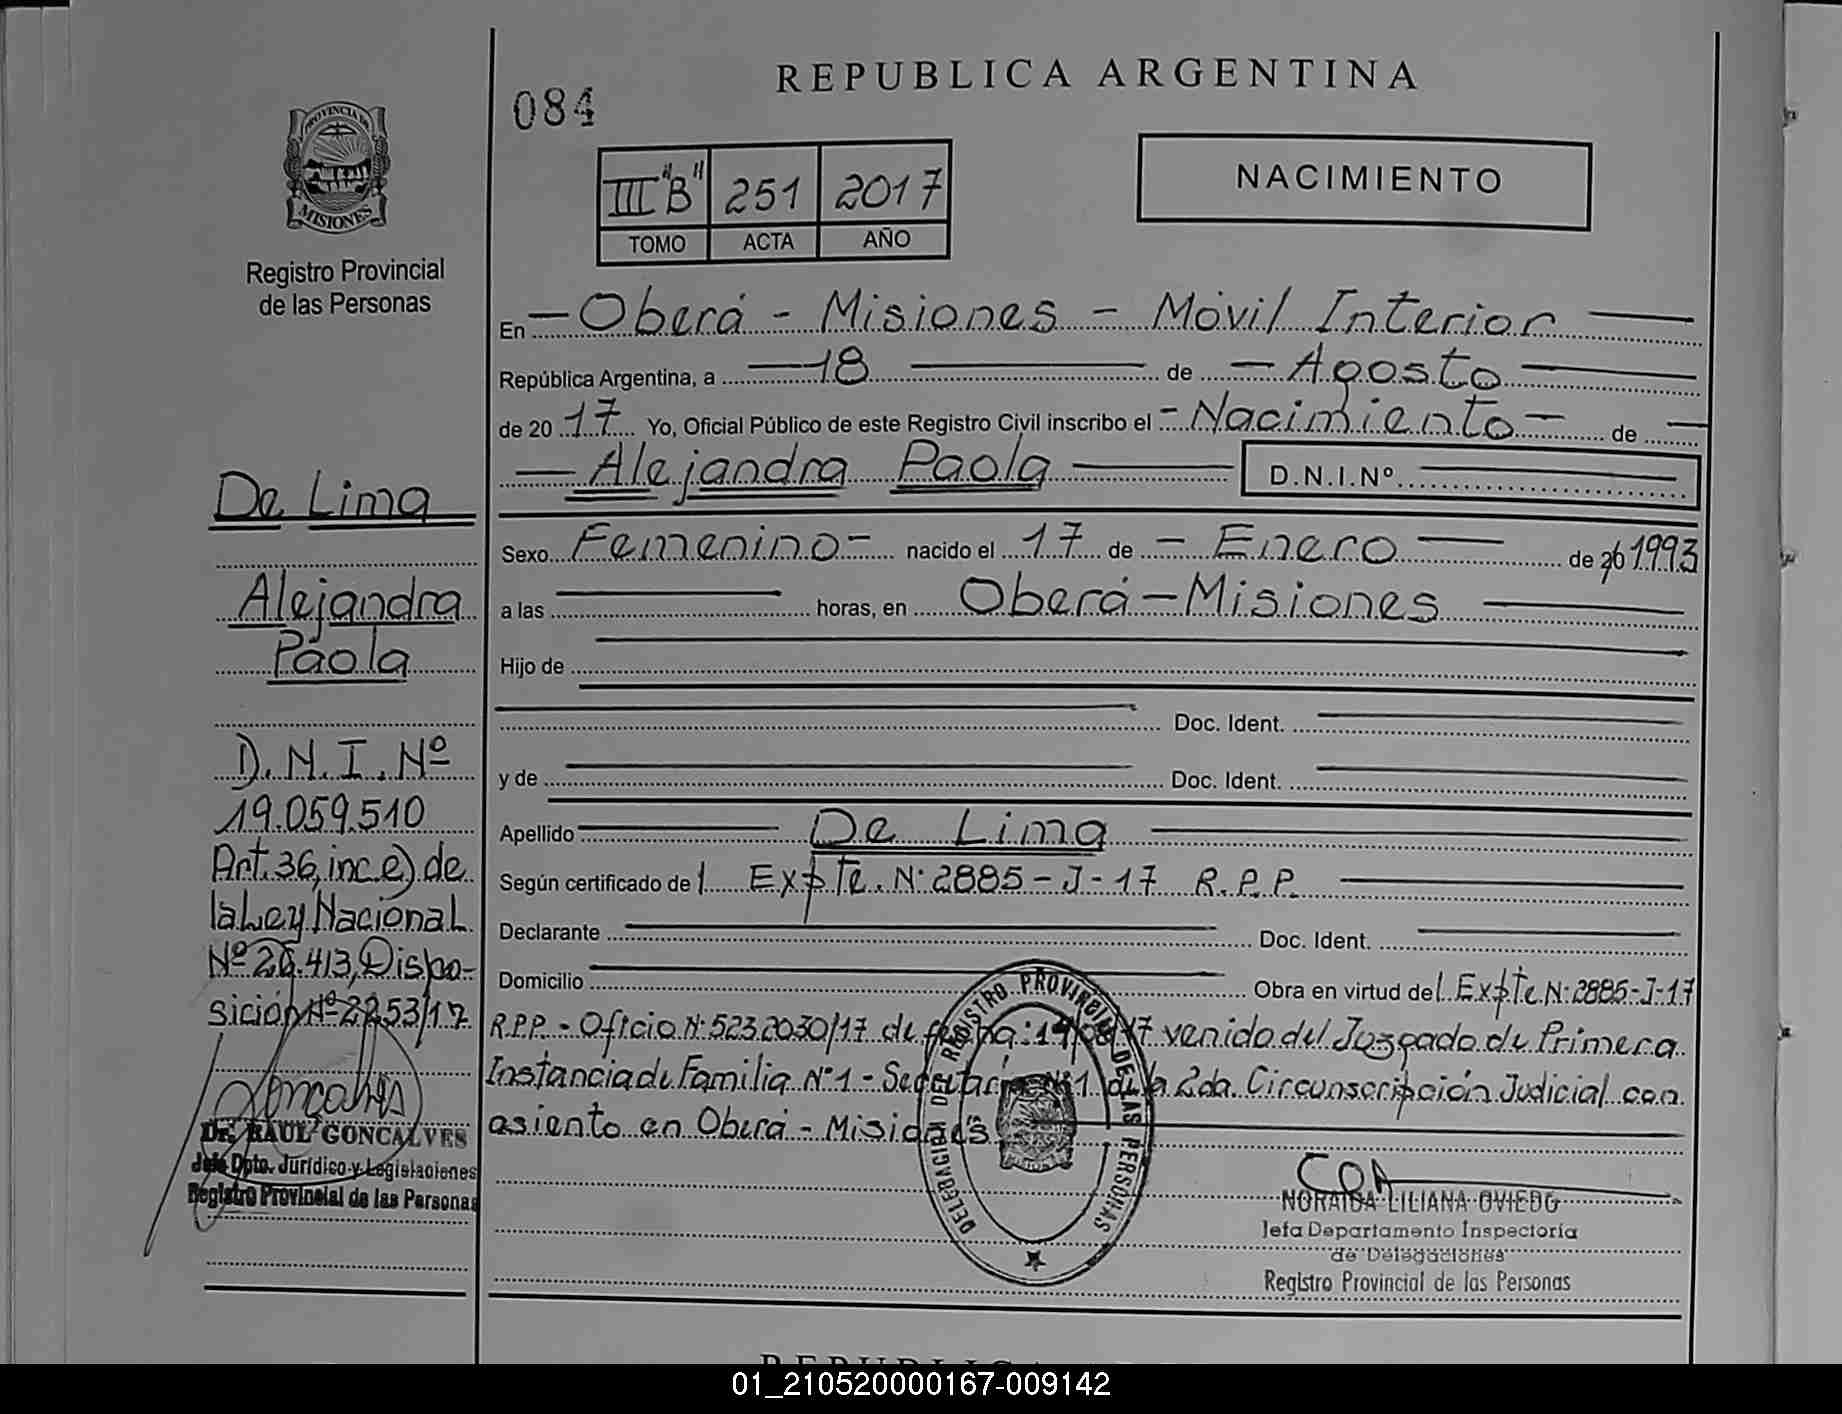 REPUBLICA ARGENTINA
084
PROVINCIA DE
MISIONES
Registro Provincial
de las Personas
III "B" 251 2017
TOMO ACTA AÑO
NACIMIENTO
En - Oberá - Misiones - Móvil Interior
República Argentina, a 18 de - Agosto
de 20 17 Yo, Oficial Público de este Registro Civil inscribo el - Nacimiento - de
Alejandra Paola D.N.I.Nº
Sexo Femenino - nacido el 17 de - Enero de 20 1993
a las horas, en Oberá - Misiones
Hijo de
Doc. Ident.
y de Doc. Ident.
Apellido De Lima
Según certificado de l Expte. Nº 2885-J-17 R.P.P.
Declarante Doc. Ident.
Domicilio Obra en virtud del Expte Nº 2885-J-17
R.P.P. - Oficio Nº 5232030/17 de fecha: 17 venido del Juzgado de Primera
Instancia de Familia Nº 1 - Secretaría Nº 1 de la 2da. Circunscripción Judicial con
asiento en Oberá - Misiones
De Lima
Alejandra
Paola
D.N.I. Nº
19.059.510
Art. 36, inc. e) de
la Ley Nacional
Nº 26.413, Dispo-
sición Nº 2253/17
Goncalves
Dr. RAUL GONCALVES
Jefe Dpto. Jurídico y Legislaciones
Registro Provincial de las Personas
DELEGACION DEL REGISTRO PROVINCIAL DE LAS PERSONAS
MISIONES
NORAIDA LILIANA OVIEDO
Jefa Departamento Inspectoría
de Delegaciones
Registro Provincial de las Personas
01_210520000167-009142